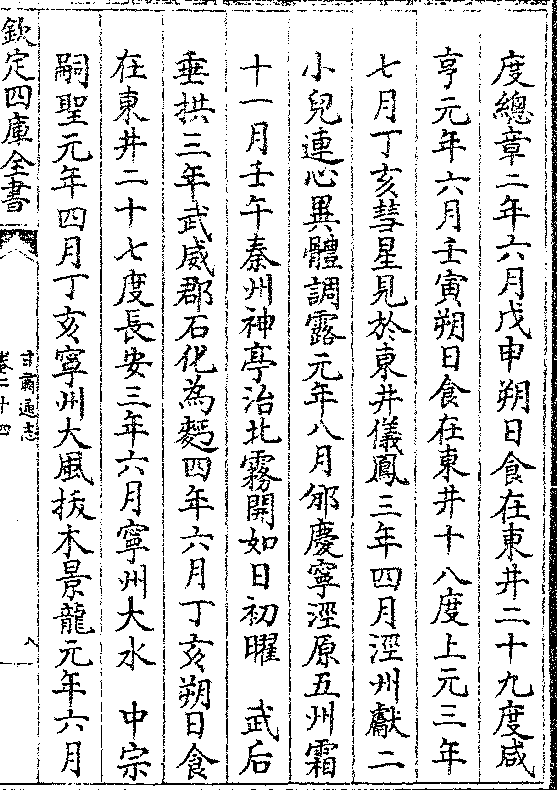 度總章二年六月戊申朔日食在東井二十九度咸
亨元年六月壬寅朔日食在東井十八度上元三年
七月丁亥彗星見於東井儀鳳三年四月涇州獻二
小兒連心異體調露元年八月邠慶寧涇原五州霜
十一月壬午秦州神亭治北霧開如日初曜　武后
垂拱三年武威郡石化為麫四年六月丁亥朔日食
在東井二十七度長安三年六月寧州大水　中宗
嗣聖元年四月丁亥寧州大風拔木景龍元年六月
欽定四庫全書
甘肅通志
卷二十四
八